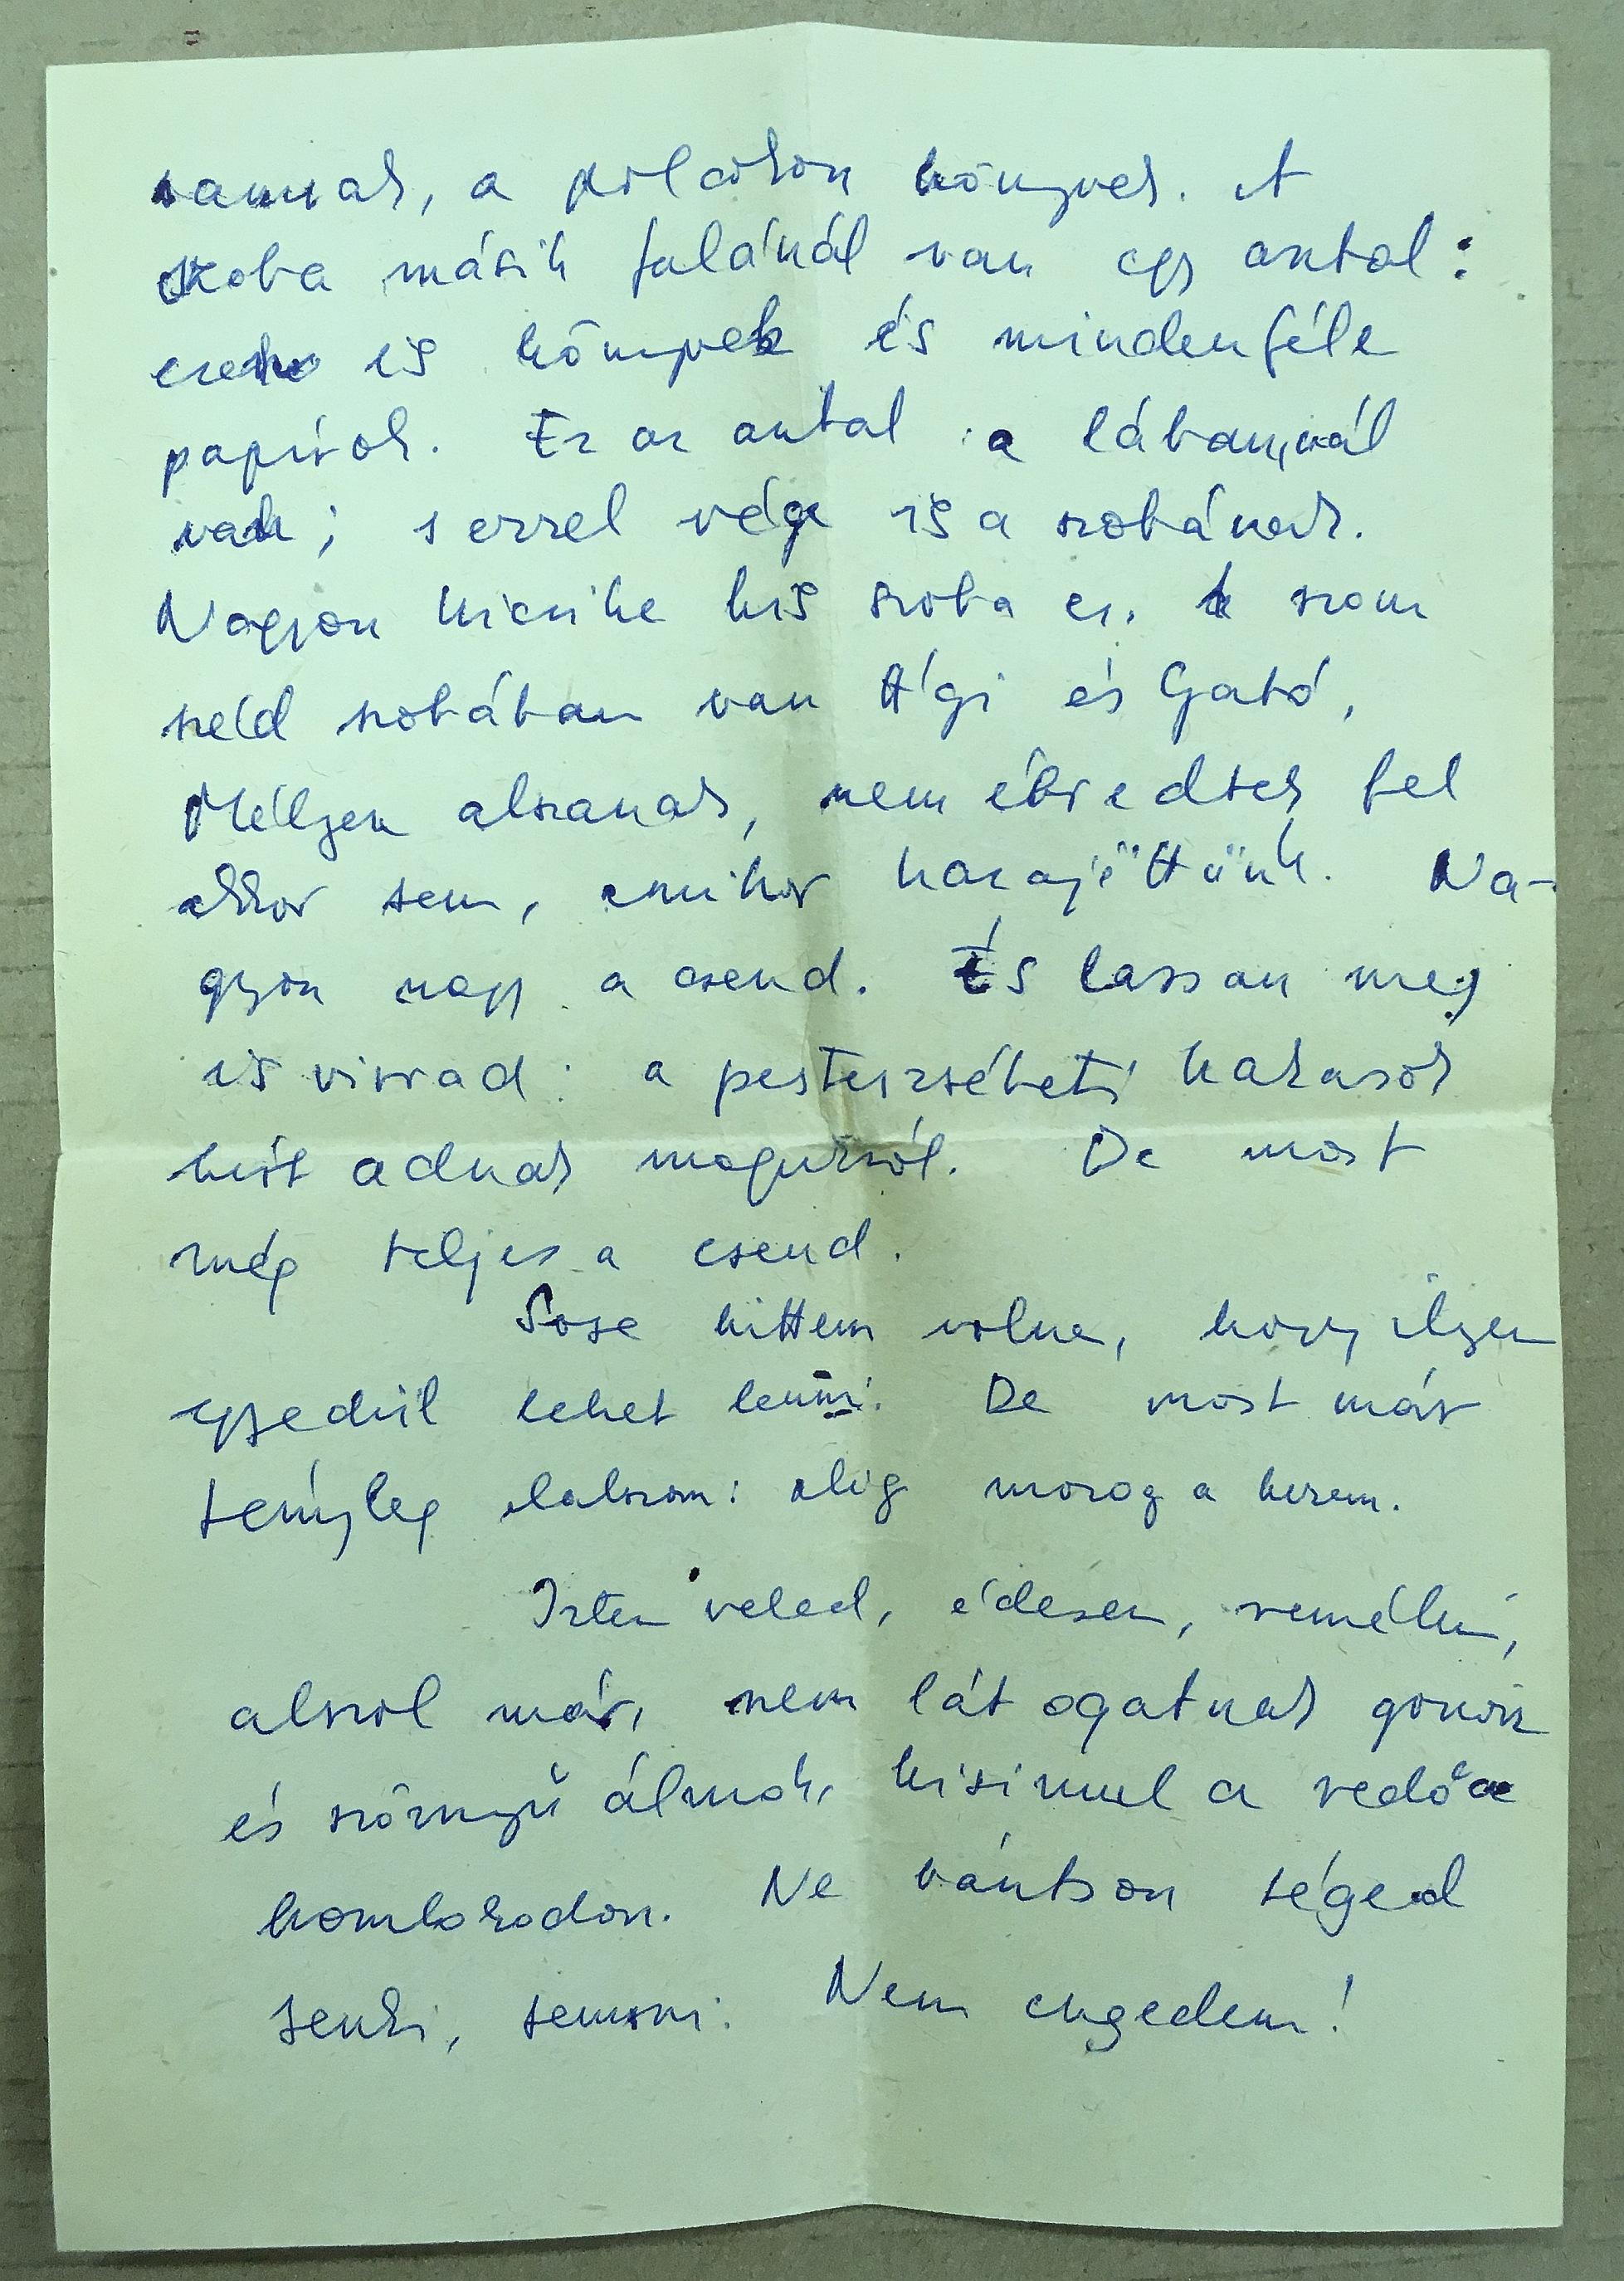 vannak, a polcokon könyvek. A
szoba másik falánál van egy asztal:
ezen is könyvek és mindenféle
papírok. Ez az asztal a lábamnál
van; s ezzel vége is a szobának.
Nagyon kicsike kis szoba ez. A szom
széd szobában van Ági és Gató,
Mélyen alszanak, nem ébredtek fel
akkor sem, amikor hazajöttünk. Na-
gyon nagy a csend. És lassan meg
is virrad: a pesterzsébeti kakasok
hírt adnak magukról. De most
még teljes a csend.
Sose hittem volna, hogy ilyen
egyedül lehet lenni. De most már
tényleg elalszom: alig mozog a kezem.
Isten veled, édesem, remélem,
alszol már, nem látogatnak gonosz
és szörnyű álmok, kisimul a redő a
homlokodon. Ne bántson téged
senki, semmi. Nem engedem!